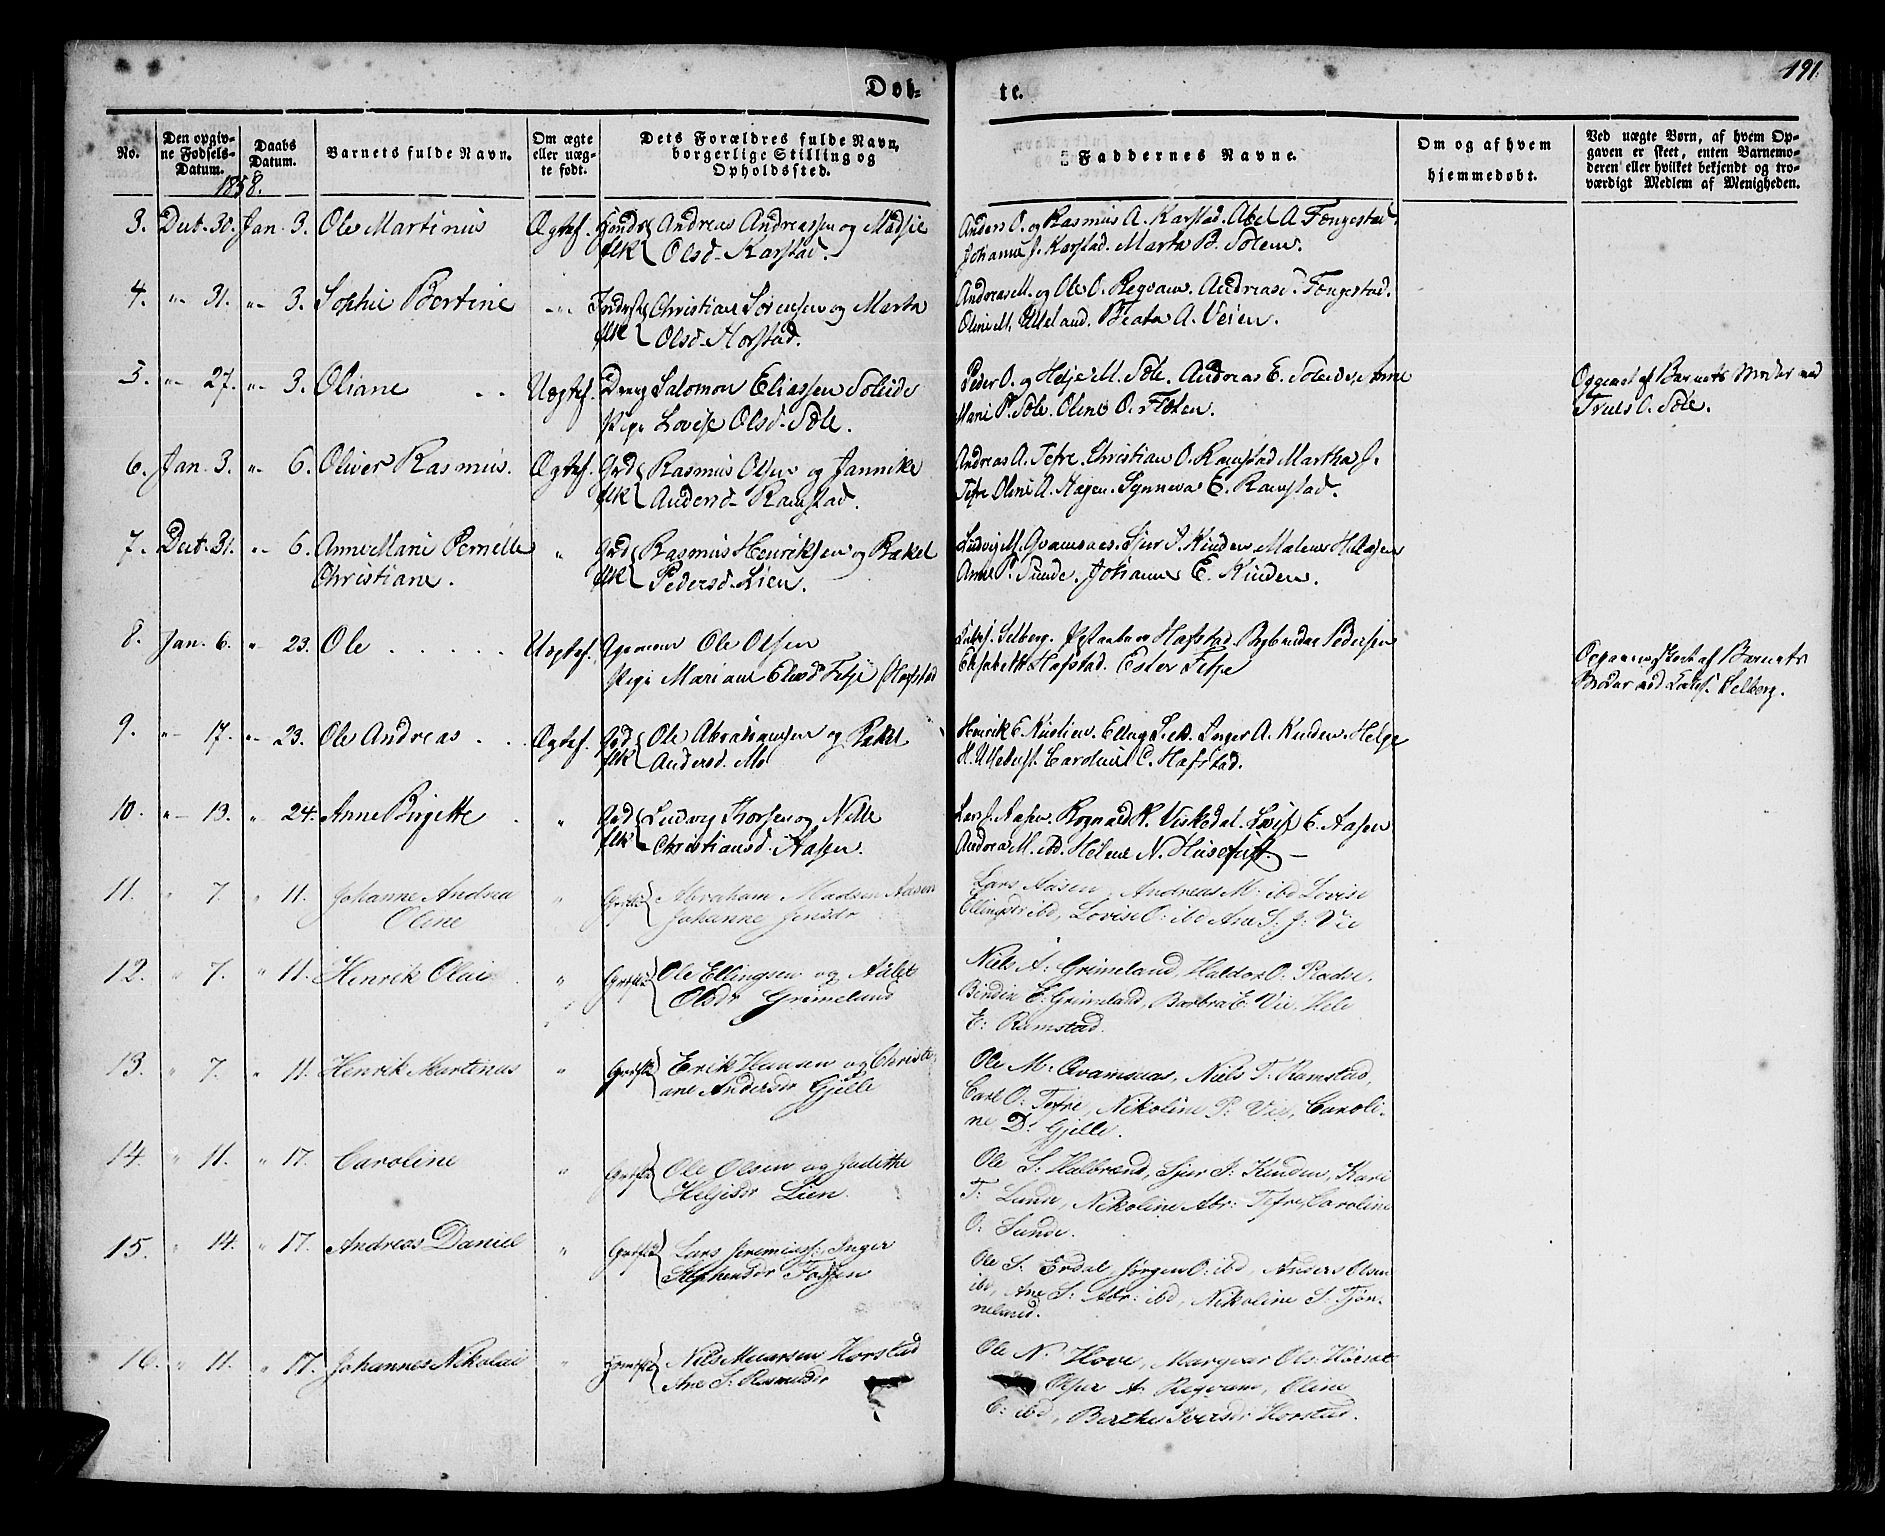 191
Døb-
te.
No.
Den opgiv-
ne Fødsels-
Datum.
Daabs
Datum.
Barnets fulde Navn.
Om ægte
eller uæg-
te født.
Dets Forældres fulde Navn,
borgerlige Stilling og
Opholdssted.
Faddernes Navne.
Om og af hvem
hjemmedøbt.
Ved uægte Børn, af hvem Op-
gaven er skeet, enten Barnemo-
deren eller hvilket bekjendt og tro-
værdigt Medlem af Menigheden.
1858.
3. 30. Jan. 3. Ole Martinus Ægtef. Andreas Andreassen og Madsie
Olsd. Karstad.
Anders O. og Rasmus A. Karstad. Abel A.
Johanne J. Karstad. Marta B. Solem.
4. " 31. " 3. Sophie Bertine " Christian Sørensen og Marta
Olsd. Horstad.
Andreas M. og Ole O. Regvam. Andreas
Oline M. Beata A. Veien.
5. " 27. " 3. Oliane Uægtef. Salomon Eliassen
Pige Lovise Olsd. Sole.
Peder O. og Helje M. Sole. Andreas E.
Marie P. Sole. Oline O. Floten.
Opgivet af Barnets Moder med
Truls O. Sole.
6. Jan. 3. " 6. Oliver Rasmus. Ægtef. Rasmus Olsen og Jannike
Andersd. Ramstad.
Andreas A. Tefre. Christian O. Ramstad Martha J.
Tefre Oline A. Hagen. Synneva E. Ramstad.
7. 31. " 6. Anne Marie Pernelle " Rasmus Henriksen og Rakel
Christiane. Pedersd. Lien.
Ludvig M. Qvamsaas. Sjur J. Kinden Malene
Anne P. Sunde. Johanne E. Kinden.
8. Jan. 6. " 23. Ole Uægtef. Ole Olsen
Pige Mariane
Selberg. Hafstad. Pedersen
Elisabeth Hafstad. Ester
Barnets
Moder med Selberg.
9. " 17. " 23. Ole Andreas Ægtef. Ole Abrahamsen og Rakel
Andersd. Mo
Henrik E. Inger A. Kinden. Helge
Caroline C. Hafstad.
10. " 13. " 24. Anne Birgitte " Ludvig Thorsen og Nille
Christiansd. Aasen.
Lars J. Aasen. Rognald N. Viskedal. Lovise E. Aasen
Andrea M. ibd. Helene N.
11. " 7. " 11. Johanne Andrea " Abraham Madsen Aasen
Oline Johanne Jensdr
Lars Aasen, Andreas M. ibd Lovise
Ellingsdr ibd, Lovise O: ibd Ane S. J: Vie
12. " 7. " 11. Henrik Olai " Ole Ellingsen og
Olsdr Grimeland
Niels A. Grimeland, Haldor O.
E. Grimeland, Barbra E. Vie,
E: Ramstad.
13. " 7. " 11. Henrik Martinus " Erik Hansen og Christi-
ane Andersdr Gjelle
Ole M. Qvamsaas, Niels T. Ramstad,
Carl O: Tefre, Nikoline P: Vie, Caroli-
ne D. Gjelle.
14. " 11. " 17. Caroline " Ole Olsen og Judithe
Heljesdr Lien.
Ole S. Halbrend, Sjur J. Kinden, Kari
T. Lunde, Nikoline Abr: Tefre, Caroline
O: Sunde.
15. " 14. " 17. Andreas Daniel " Lars Jeremiass: Inger
Stephensdr Fossen
Ole S. Erdal, Jørgen O: ibd, Anders Olsen
ibd, Ane S: Abr: ibd, Nikoline S. Tjøn-
neland.
16. " 11. " 17. Johannes Nikolai " Nils Horstad
Ane S: Rasmusdr
Ole N. Hove,
A. Regvam, Oline
C: ibd, Berthe Iversdr Horstad.